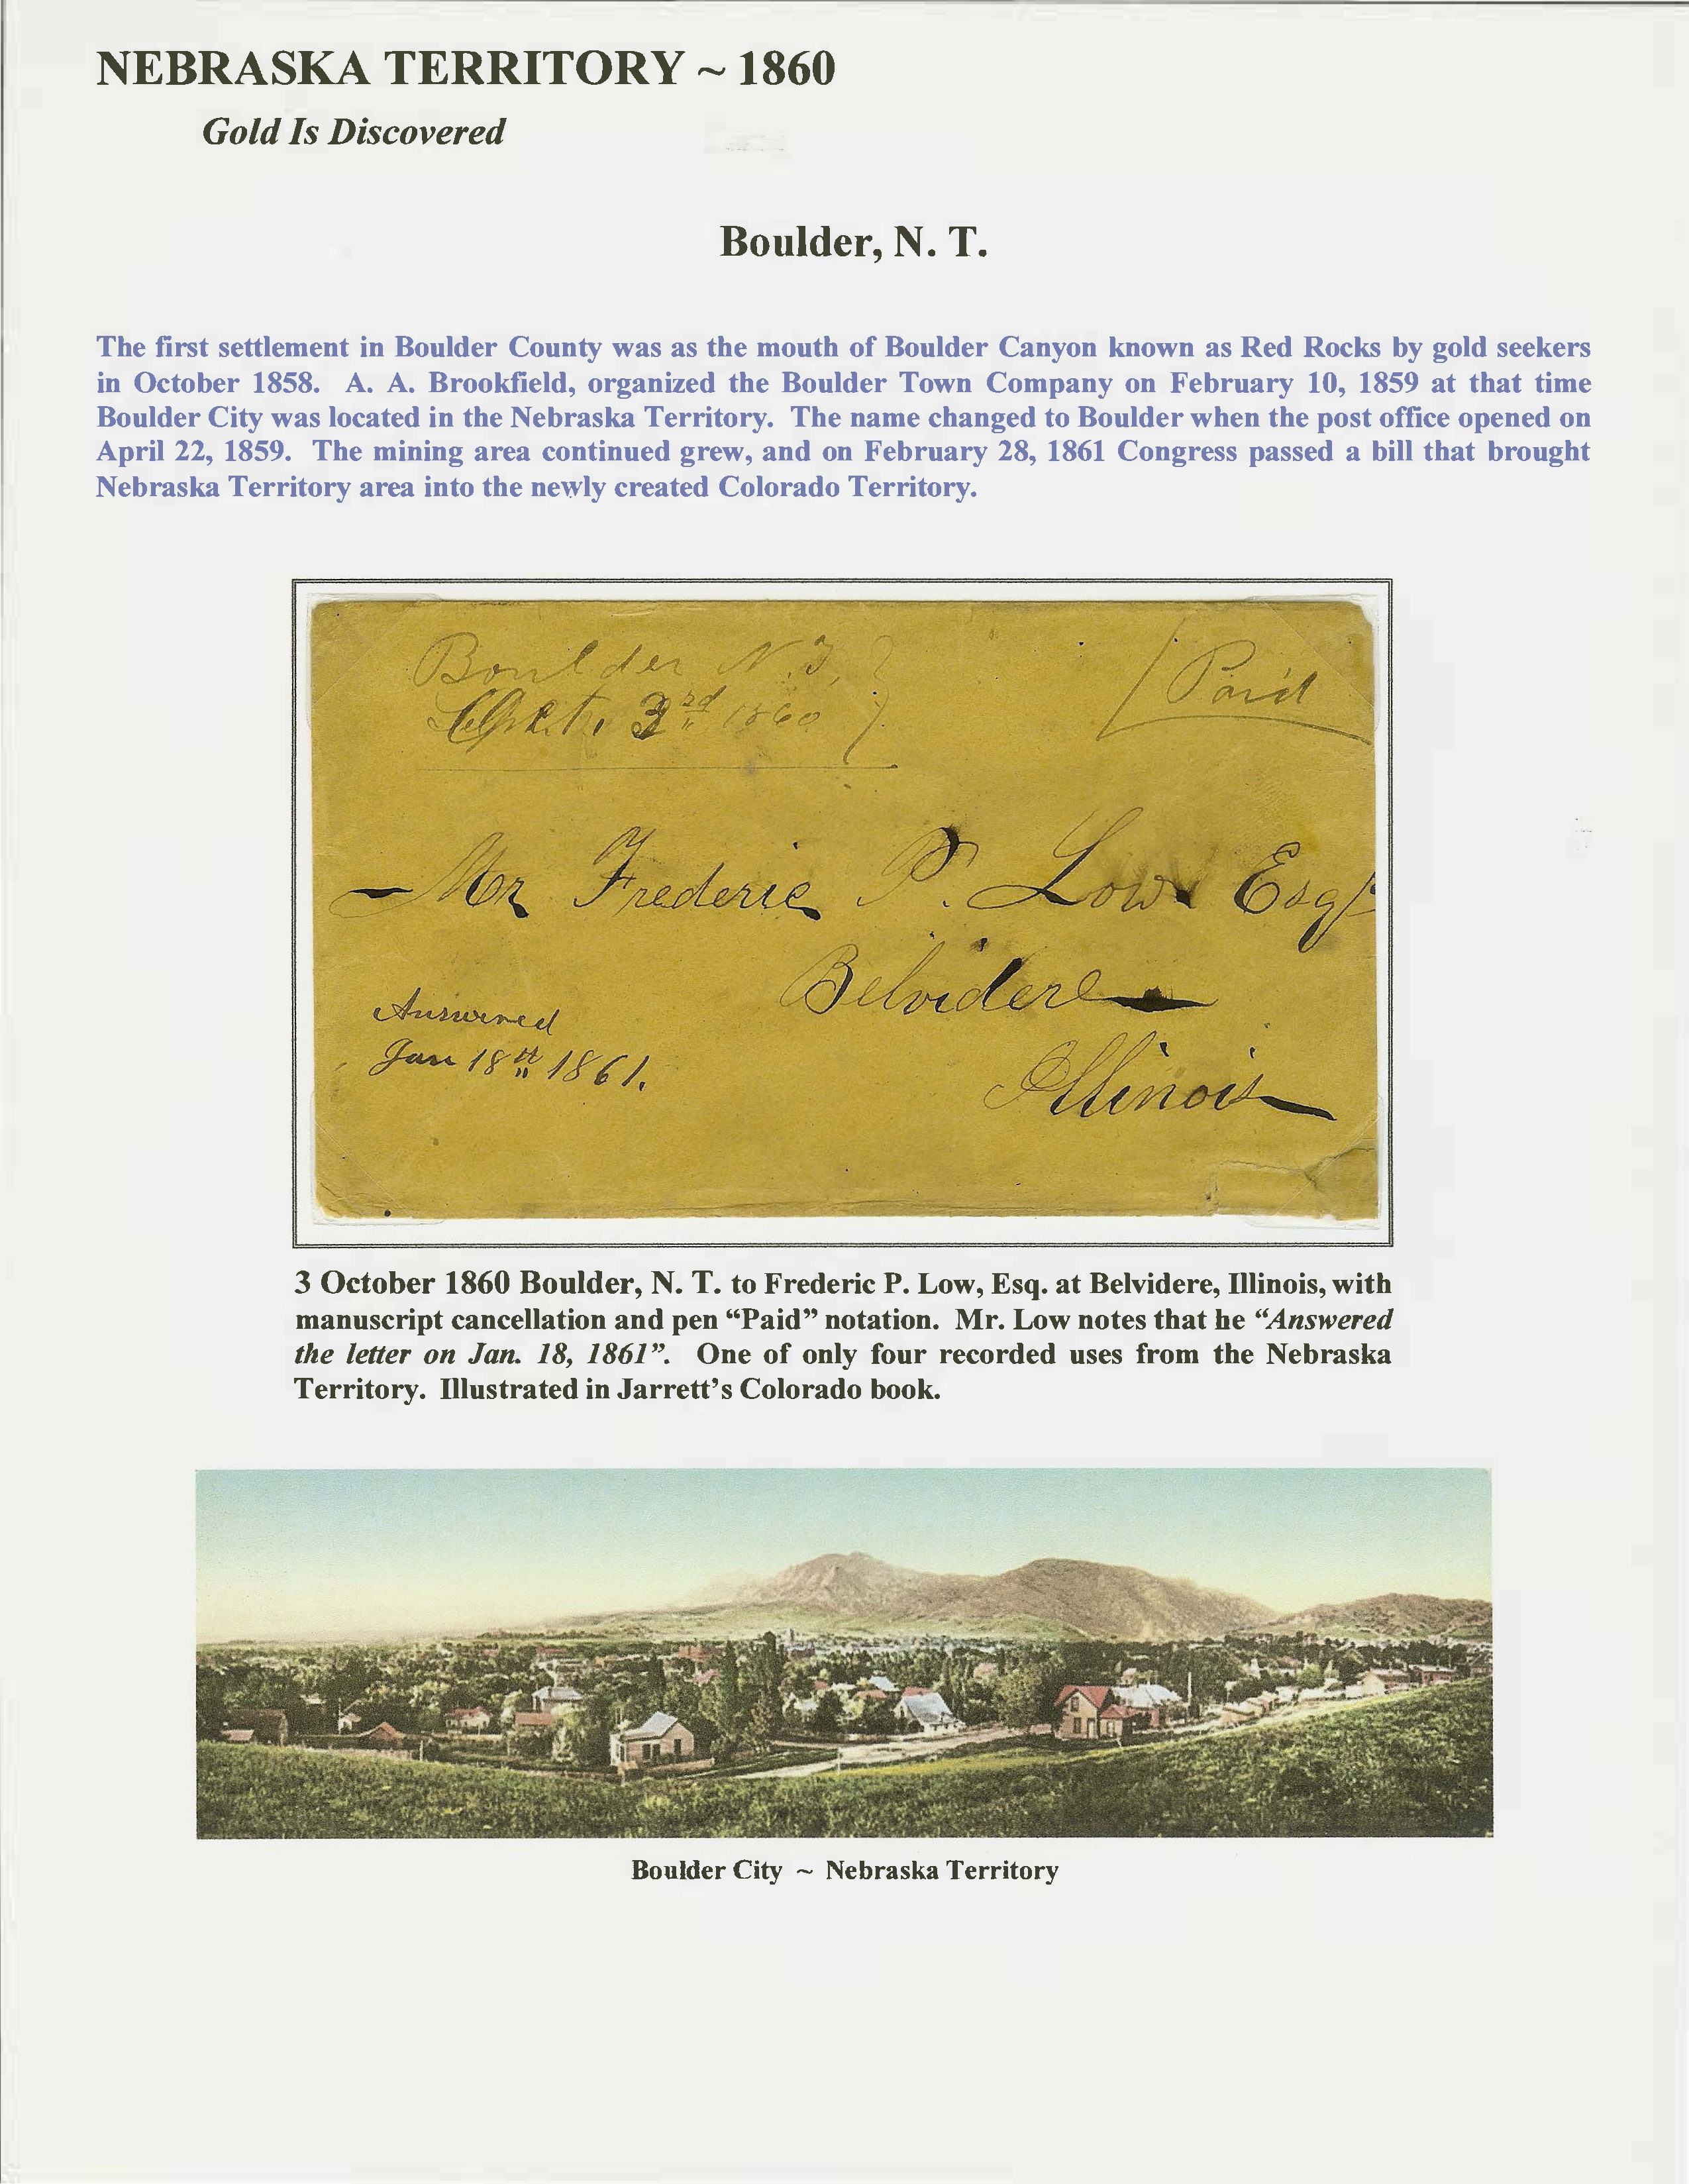 NEBRASKA TERRITORY ~ 1860
Gold Is Discovered
Boulder, N. T.
The first settlement in Boulder County was as the mouth of Boulder Canyon known as Red Rocks by gold seekers
in October 1858. A. A. Brookfield, organized the Boulder Town Company on February 10, 1859 at that time
Boulder City was located in the Nebraska Territory. The name changed to Boulder when the post office opened on
April 22, 1859. The mining area continued grew, and on February 28, 1861 Congress passed a bill that brought
Nebraska Territory area into the newly created Colorado Territory.
Boulder N.T.
Oct. 3rd 1860
Paid
Mr Frederic P. Low Esqr
Belvidere
Answered
Jan 18th 1861.
Illinois
3 October 1860 Boulder, N. T. to Frederic P. Low, Esq. at Belvidere, Illinois, with
manuscript cancellation and pen “Paid” notation. Mr. Low notes that he “Answered
the letter on Jan. 18, 1861”. One of only four recorded uses from the Nebraska
Territory. Illustrated in Jarrett’s Colorado book.
Boulder City ~ Nebraska Territory